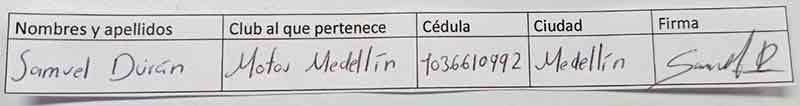 Nombres y apellidos Club al que pertenece Cédula Ciudad Firma
Samuel Durán Motos Medellín 1036610992 Medellín Samuel D